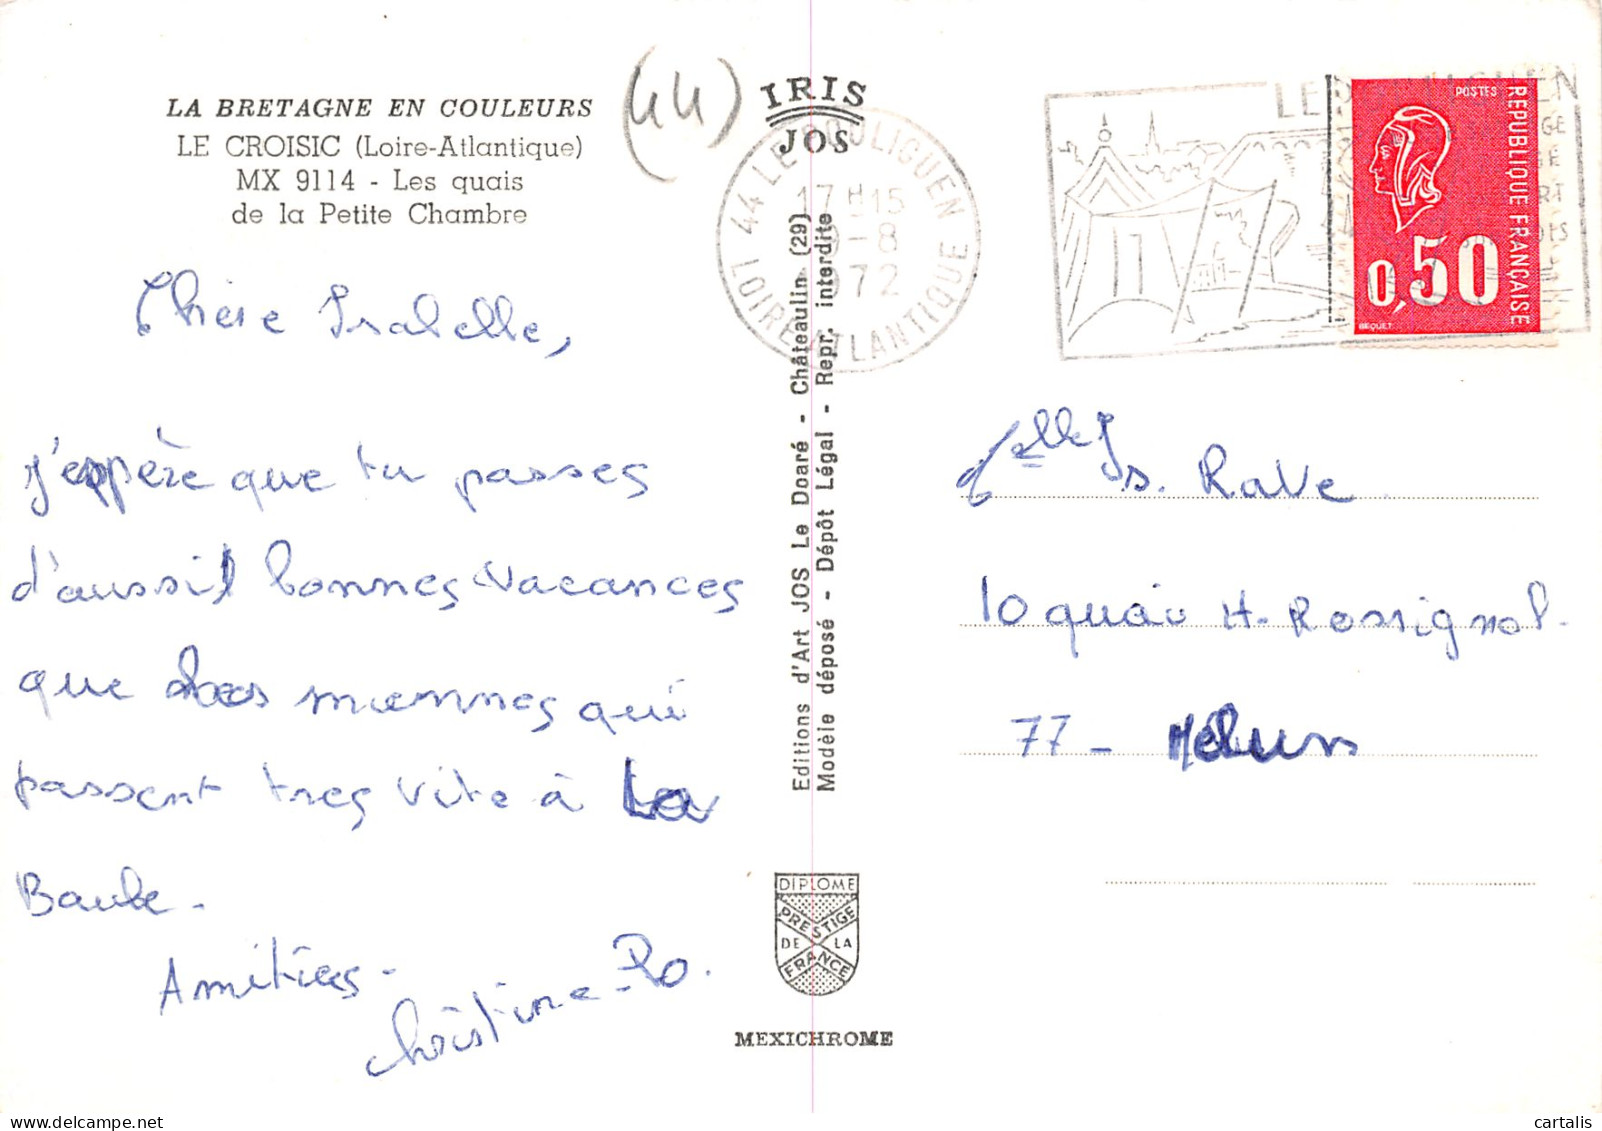 LA BRETAGNE EN COULEURS
LE CROISIC (Loire-Atlantique)
MX 9114 - Les quais
de la Petite Chambre
(44)
IRIS
JOS
44 LE POULIGUEN
17 H 15
-8
1972
LOIRE ATLANTIQUE
POSTES
REPUBLIQUE FRANÇAISE
0,50
BEQUET
Chère Isabelle,
j'espère que tu passes
d'aussi bonnes vacances
que les miennes qui
passent tres vite à La
Baule.
Amitiés.
Christine-Ro.
Editions d'Art JOS Le Doaré - Châteaulin (29)
Modèle déposé - Dépôt Légal - Repr. interdite
Rave
10 quai H. Rossignol.
77 - Melun
DIPLOME
PRESTIGE
DE LA
FRANCE
MEXICHROME
cartalis | delcampe.net